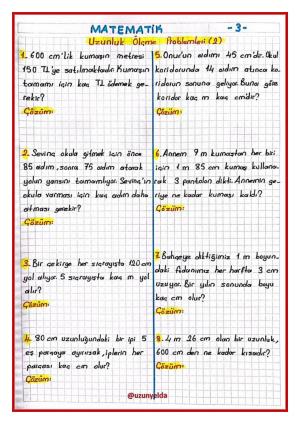 MATEMATİK -3-
Uzunluk Ölçme Problemleri (2)
1. 600 cm'lik kumaşın metresi
150 TL'ye satılmaktadır. Kumaşın
tamamı için kaç TL ödemek ge-
rekir?
Çözüm:
2. Sevinç okula gitmek için önce
85 adım, sonra 75 adım atarak
yolun yarısını tamamlıyor. Sevinç'in
okula varması için kaç adım daha
atması gerekir?
Çözüm:
3. Bir çekirge her sıçrayışta 120 cm
yol alıyor. 5 sıçrayışta kaç m yol
alır?
Çözüm:
4. 80 cm uzunluğundaki bir ipi 5
eş parçaya ayırırsak, iplerin her
parçası kaç cm olur?
Çözüm:
5. Onur'un adımı 45 cm'dir. Okul
koridorunda 14 adım atınca ko-
ridorun sonuna geliyor. Buna göre
koridor kaç m kaç cm'dir?
Çözüm:
6. Annem 9 m kumaştan her biri
için 1 m 85 cm kumaş kullana-
rak 3 pantolon dikti. Annemin ge-
riye ne kadar kumaşı kaldı?
Çözüm:
7. Bahçeye diktiğimiz 1 m boyun-
daki fidanımız her hafta 3 cm
uzuyor. Bir yılın sonunda boyu
kaç cm olur?
Çözüm:
8. 4 m 26 cm olan bir uzunluk,
600 cm den ne kadar kısadır?
Çözüm:
@uzunyelda